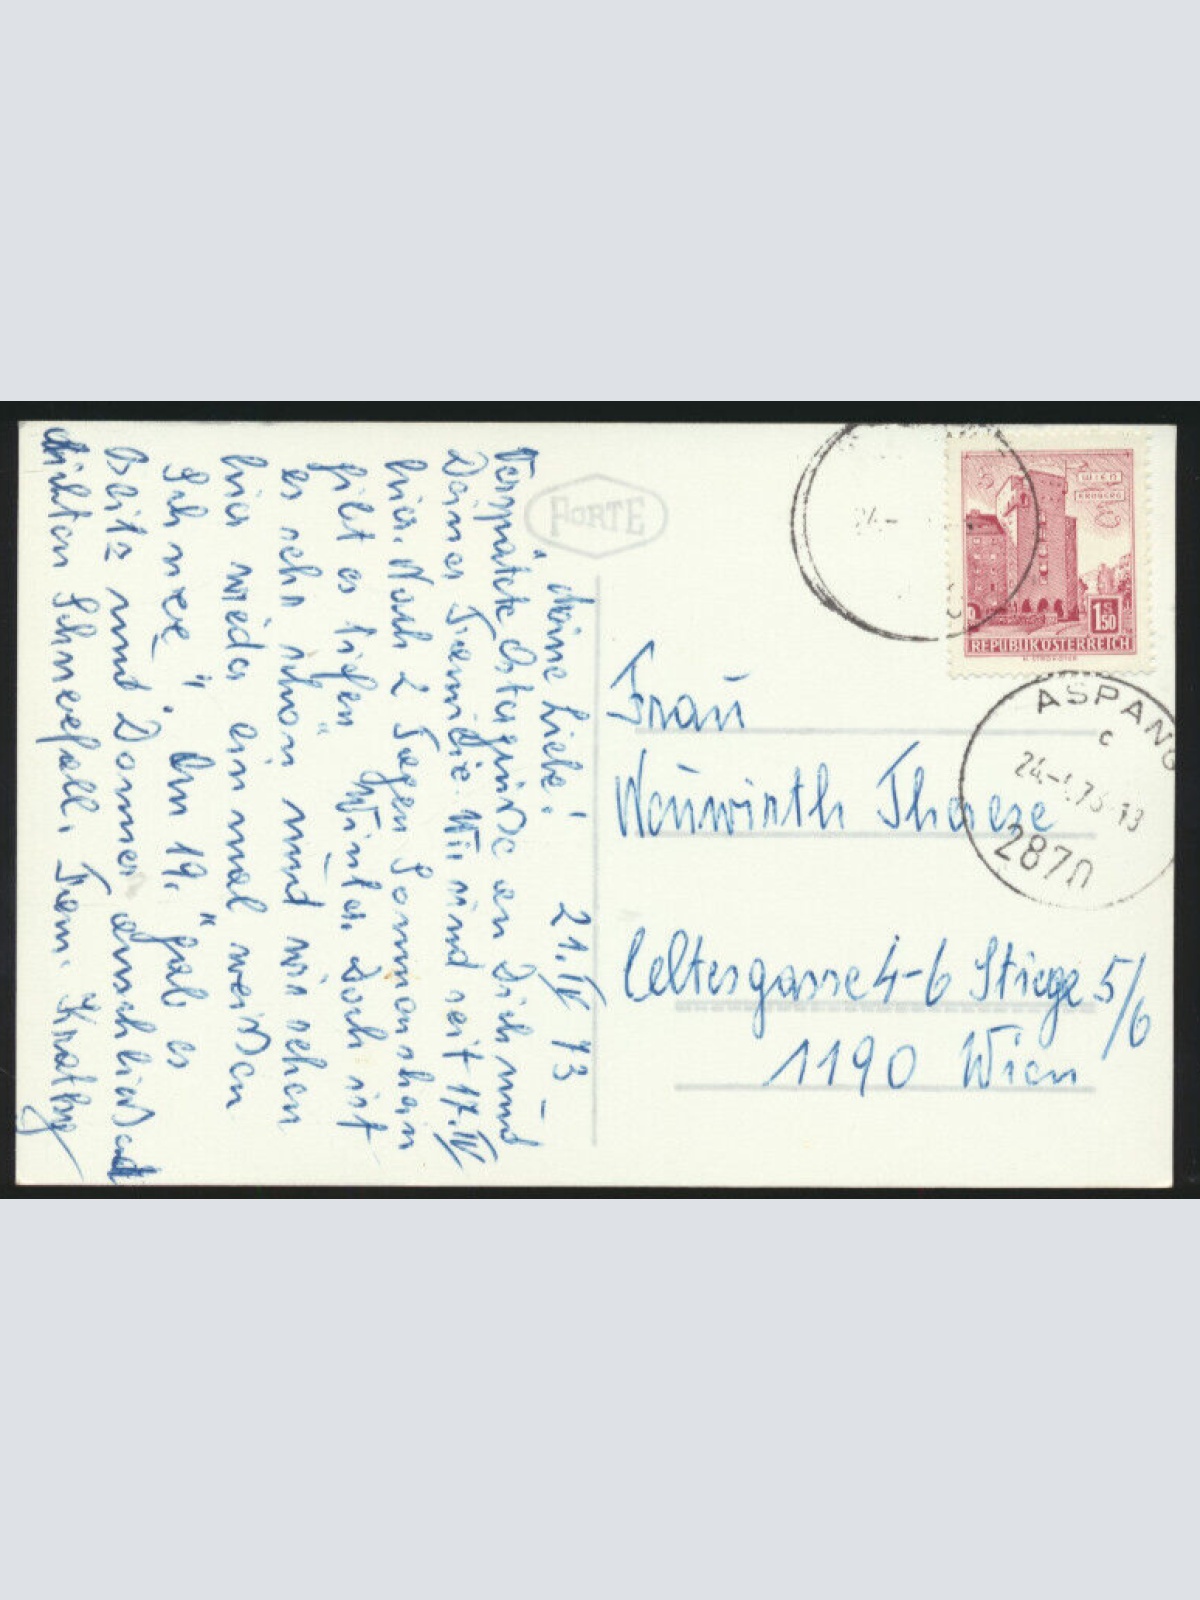 Meine Liebe! 21. IV 73
Verspätete Ostergrüße an Dich und
Deiner Familie. Wir sind seit 17. IV
hier. Nach 2 Tagen Sonnenschein
gibt es tiefen Winter. Doch ist
es sehr schön und wir sehen
hier wieder einmal weißen
Schnee". Am 19. "gab es
Blitz und Donner anschließend
dichten Schneefall. Fam.
FORTE
WIEN
ERDBERG
1 S 50
REPUBLIK ÖSTERREICH
ASPANG
c
24.-4.73-13
2870
Frau
Neuwirth Therese
Celtesgasse 4-6 Stiege 5/6
1190 Wien